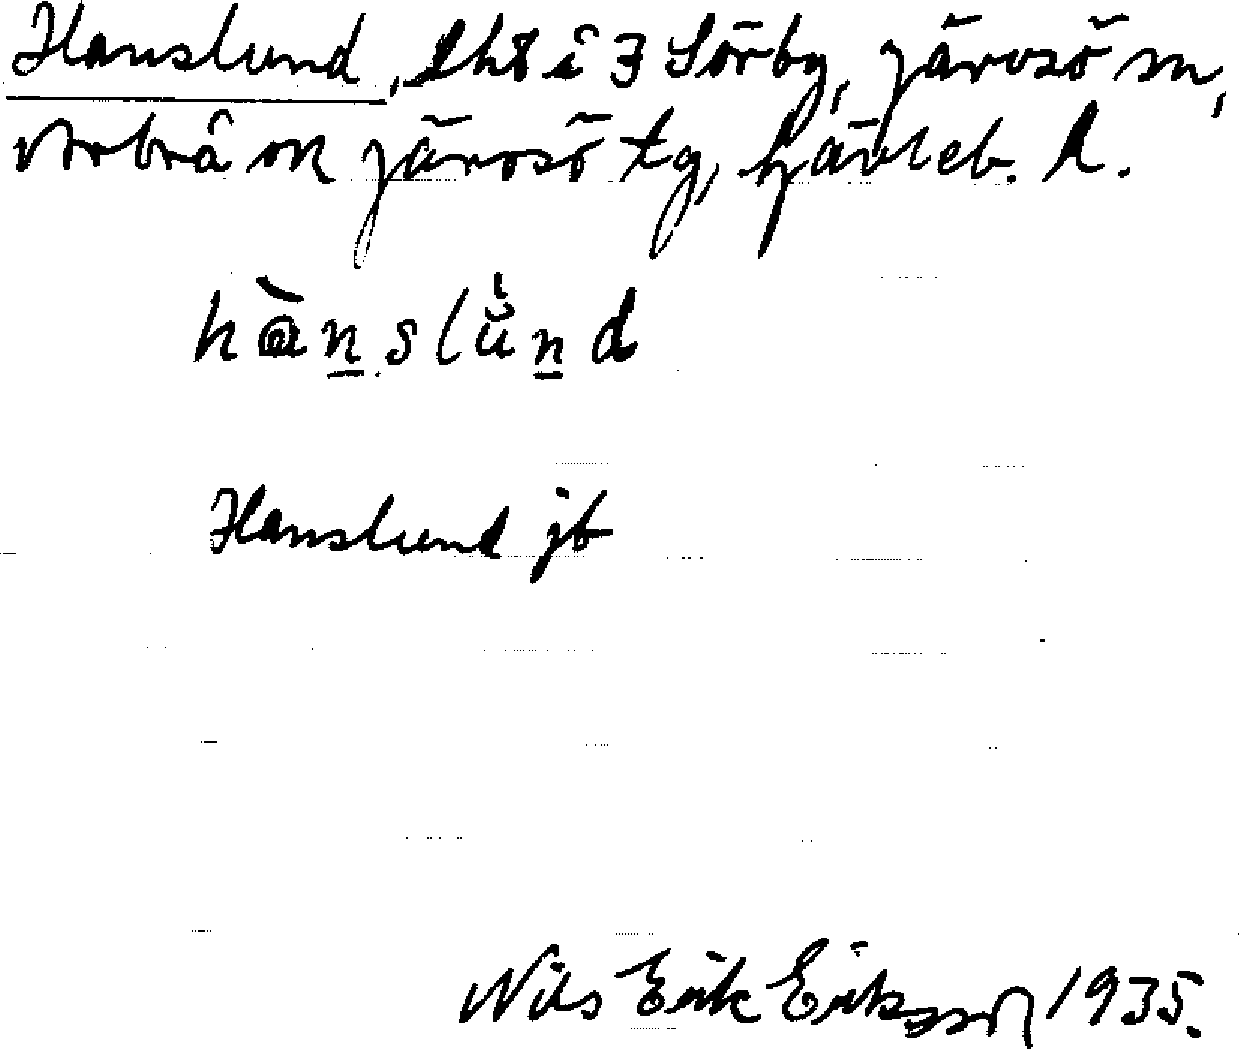 Hanslund, lht i 3 Sörby, Järvsö sn,
Arbrå ok Järvsö tg, Gävleb. l.
hàn̲slŭ̀n̲d
Hanslund jb
Nils Erik Eriksson 1935.